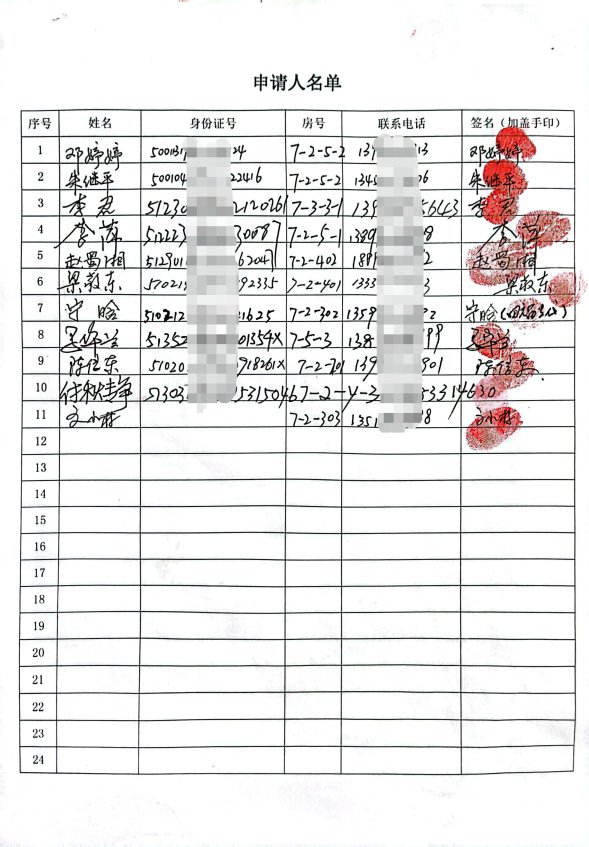 申请人名单
序号 姓名 身份证号 房号 联系电话 签名（加盖手印）
1 邓婷婷 500137 24 7-2-5-2 139 13 邓婷婷
2 朱继平 50010 22416 7-2-5-2 1345 06 朱继平
3 李君 51230 2120261 7-3-3-1 139 5643 李君
4 李萍 512223 3008 7-2-5-1 1389 8 李萍
5 赵蜀湘 512901 7-2-402 189 2 赵蜀湘
6 梁敖东 570219 92335 7-2-401 1333 3 梁敖东
7 宁晗 510212 21625 7-2-302 1359 92 宁晗
8 51352 01354X 7-5-3 138 99
9 陈佳东 51020 918261X 7-2-201 139 901 陈佳东
10 付秋静 51303 5315046 7-2-4-3 53314630
11 文小林 7-2-303 1351 8 文小林
12
13
14
15
16
17
18
19
20
21
22
23
24